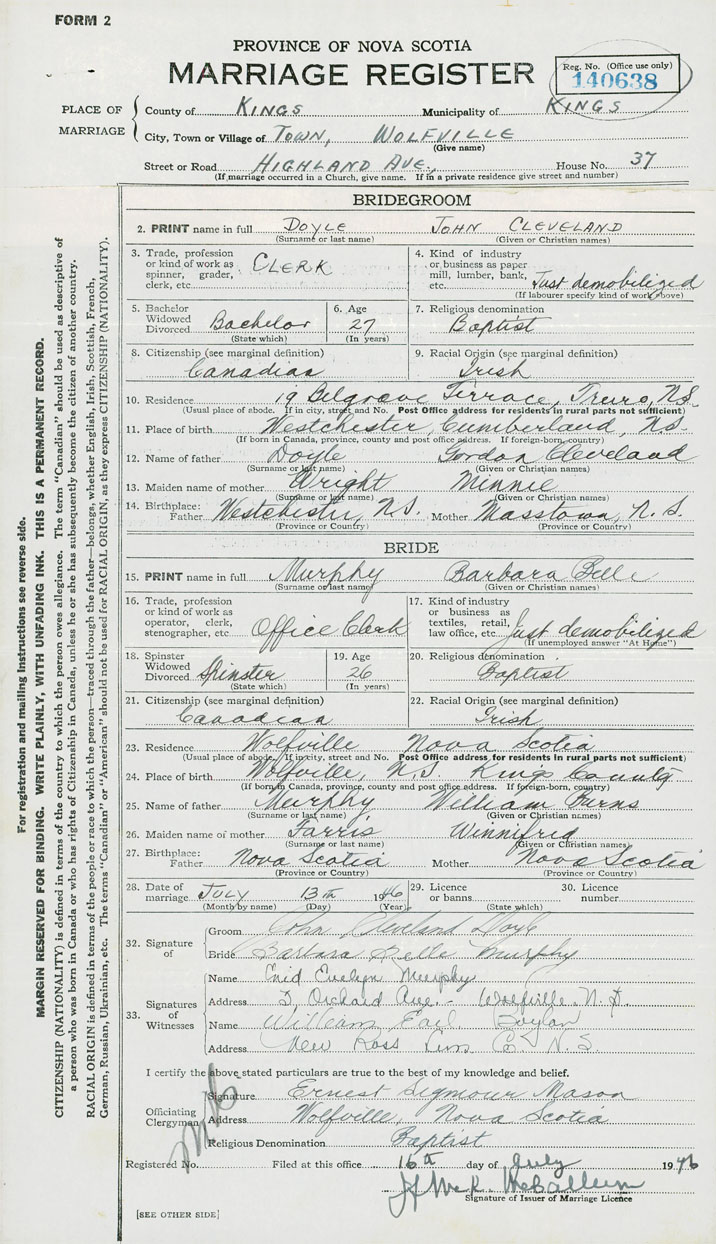 FORM 2
PROVINCE OF NOVA SCOTIA
MARRIAGE REGISTER
Reg. No. (Office use only)
140638
PLACE OF MARRIAGE
County of KINGS Municipality of KINGS
City, Town or Village of TOWN, WOLFVILLE
(Give name)
Street or Road HIGHLAND AVE., House No. 37
(If marriage occurred in a Church, give name. If in a private residence give street and number)
BRIDEGROOM
2. PRINT name in full DOYLE JOHN CLEVELAND
(Surname or last name) (Given or Christian names)
3. Trade, profession or kind of work as spinner, grader, clerk, etc. CLERK
4. Kind of industry or business as paper mill, lumber, bank, etc. Just demobilized
(If labourer specify kind of work above)
5. Bachelor Widowed Divorced Bachelor
(State which)
6. Age 27
(In years)
7. Religious denomination
Baptist
8. Citizenship (see marginal definition)
Canadian
9. Racial Origin (see marginal definition)
Irish
10. Residence 19 Belgrave Terrace, Truro, N.S.
(Usual place of abode. If in city, street and No. Post Office address for residents in rural parts not sufficient)
11. Place of birth Westchester, Cumberland, N.S.
(If born in Canada, province, county and post office address. If foreign-born, country)
12. Name of father Doyle Gordon Cleveland
(Surname or last name) (Given or Christian names)
13. Maiden name of mother Wright Minnie
(Surname or last name) (Given or Christian names)
14. Birthplace: Father Westchester, N.S. Mother Masstown, N.S.
(Province or Country) (Province or Country)
BRIDE
15. PRINT name in full Murphy Barbara Belle
(Surname or last name) (Given or Christian names)
16. Trade, profession or kind of work as operator, clerk, stenographer, etc. Office Clerk
17. Kind of industry or business as textiles, retail, law office, etc. Just demobilized
(If unemployed answer "At Home")
18. Spinster Widowed Divorced Spinster
(State which)
19. Age 26
(In years)
20. Religious denomination
Baptist
21. Citizenship (see marginal definition)
Canadian
22. Racial Origin (see marginal definition)
Irish
23. Residence Wolfville Nova Scotia
(Usual place of abode. If in city, street and No. Post Office address for residents in rural parts not sufficient)
24. Place of birth Wolfville, N.S. Kings County
(If born in Canada, province, county and post office address. If foreign-born, country)
25. Name of father Murphy William Burns
(Surname or last name) (Given or Christian names)
26. Maiden name of mother Farris Winnifred
(Surname or last name) (Given or Christian names)
27. Birthplace: Father Nova Scotia Mother Nova Scotia
(Province or Country) (Province or Country)
28. Date of marriage JULY 13th 1946
(Month by name) (Day) (Year)
29. Licence or banns
(State which)
30. Licence number
32. Signature of
Groom John Cleveland Doyle
Bride Barbara Belle Murphy
33. Signatures of Witnesses
Name Enid Evelyn Murphy
Address Orchard Ave. - Wolfville. N.S.
Name William Earl Boylan
Address New Ross Lun Co. N.S.
I certify the above stated particulars are to the best of my knowledge and belief.
Officiating Clergyman
Signature Ernest Seymour Mason
Address Wolfville, Nova Scotia
Religious Denomination Baptist
Registered No. Filed at this office 16th day of July 1946
Signature of Issuer of Marriage Licence
[SEE OTHER SIDE]
For registration and mailing instructions see reverse side.
MARGIN RESERVED FOR BINDING. WRITE PLAINLY, WITH UNFADING INK. THIS IS A PERMANENT RECORD.
CITIZENSHIP (NATIONALITY) is defined in terms of the country to which the person owes allegiance. The term "Canadian" should be used as descriptive of
a person who was born in Canada or who has rights of Citizenship in Canada, unless he or she has subsequently become the citizen of another country.
RACIAL ORIGIN is defined in terms of the people or race to which the person—traced through the father—belongs, whether English, Irish, Scottish, French,
German, Russian, Ukrainian, etc. The terms "Canadian" or "American" should not be used for RACIAL ORIGIN, as they express CITIZENSHIP (NATIONALITY).